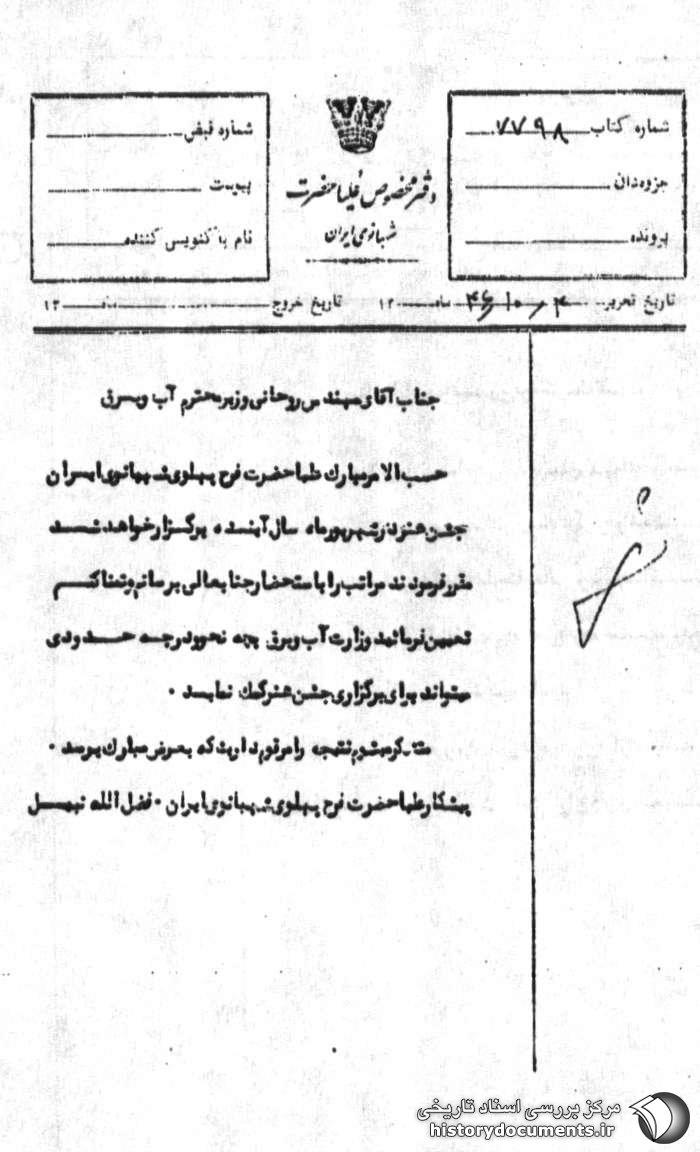 شماره کتاب ۷۷۹۸
جزوه‌دان
پرونده
دفتر مخصوص علیاحضرت
شهبانوی ایران
شماره قبض
پیوست
نام پاکنویس کننده
تاریخ تحریر ۴ ر ۱۰ ر ۴۶ ماه ۱۳
تاریخ خروج ماه ۱۳
جناب آقای مهندس روحانی وزیر محترم آب و برق
حسب الامر مبارک علیاحضرت فرح پهلوی شهبانوی ایران
جشن هنر در شهریور ماه سال آینده برگزار خواهد شد
مقرر فرمودند مراتب را باستحضار جنابعالی برسانم و تمنا کنم
تعیین فرمائید وزارت آب و برق بچه نحو و درچه حدودی
میتواند برای برگزاری جشن هنر کمک نماید ۰
متذکر میشوم نتیجه را مرقوم دارید که بعرض مبارک برسد ۰
پیشکار علیاحضرت فرح پهلوی شهبانوی ایران ۰ فضل الله نبیل
مرکز بررسی اسناد تاریخی
historydocuments.ir